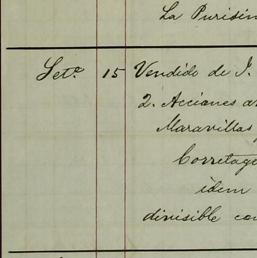 La Purisin
Set.e 15 Vendido de J.
2. Acciones a
Maravillas
Corretage
idem
divisible con